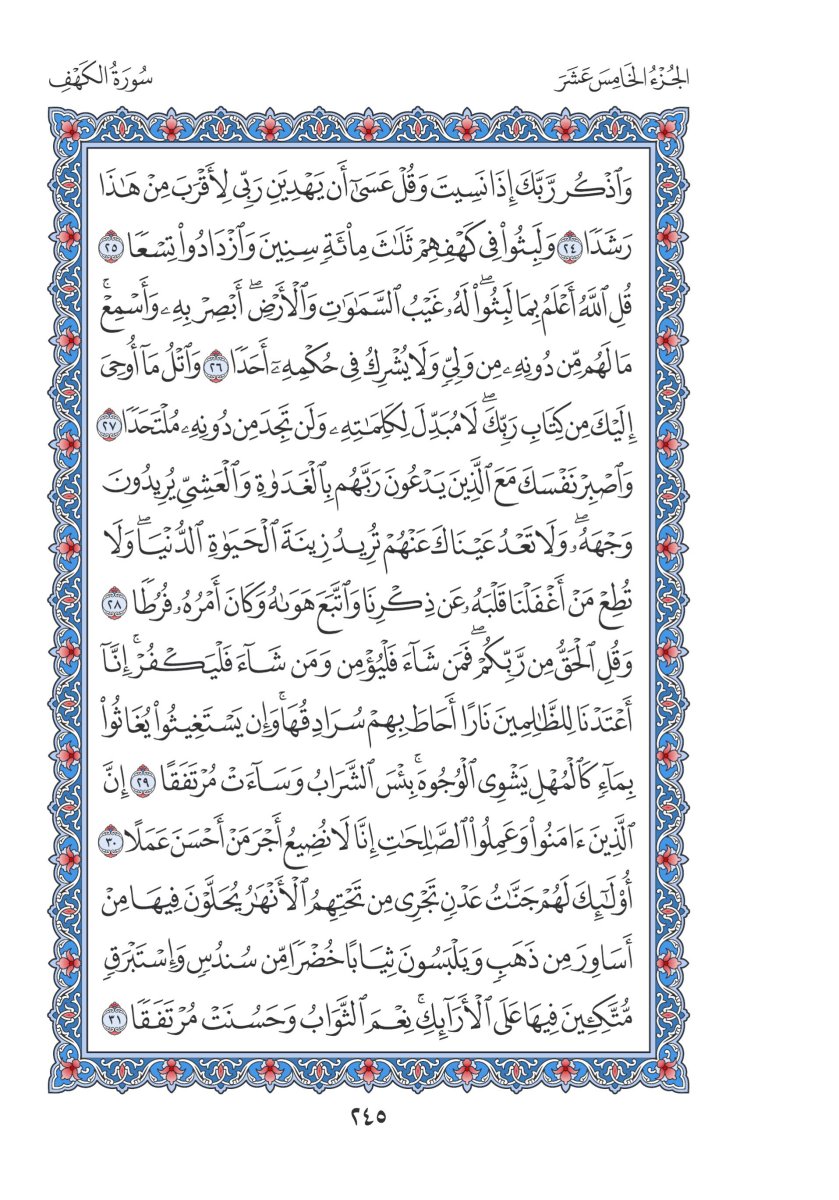 الجُزْءُ الخَامِسَ عَشَرَ
سُورَةُ الكَهْفِ
وَٱذْكُر رَّبَّكَ إِذَا نَسِيتَ وَقُلْ عَسَىٰٓ أَن يَهْدِيَنِ رَبِّى لِأَقْرَبَ مِنْ هَٰذَا
رَشَدًا ٢٤ وَلَبِثُوا۟ فِى كَهْفِهِمْ ثَلَٰثَ مِا۟ئَةٍ سِنِينَ وَٱزْدَادُوا۟ تِسْعًا ٢٥
قُلِ ٱللَّهُ أَعْلَمُ بِمَا لَبِثُوا۟ۖ لَهُۥ غَيْبُ ٱلسَّمَٰوَٰتِ وَٱلْأَرْضِۖ أَبْصِرْ بِهِۦ وَأَسْمِعْۚ
مَا لَهُم مِّن دُونِهِۦ مِن وَلِىٍّ وَلَا يُشْرِكُ فِى حُكْمِهِۦٓ أَحَدًا ٢٦ وَٱتْلُ مَآ أُوحِىَ
إِلَيْكَ مِن كِتَابِ رَبِّكَۖ لَا مُبَدِّلَ لِكَلِمَٰتِهِۦ وَلَن تَجِدَ مِن دُونِهِۦ مُلْتَحَدًا ٢٧
وَٱصْبِرْ نَفْسَكَ مَعَ ٱلَّذِينَ يَدْعُونَ رَبَّهُم بِٱلْغَدَوٰةِ وَٱلْعَشِىِّ يُرِيدُونَ
وَجْهَهُۥۖ وَلَا تَعْدُ عَيْنَاكَ عَنْهُمْ تُرِيدُ زِينَةَ ٱلْحَيَوٰةِ ٱلدُّنْيَاۖ وَلَا
تُطِعْ مَنْ أَغْفَلْنَا قَلْبَهُۥ عَن ذِكْرِنَا وَٱتَّبَعَ هَوَىٰهُ وَكَانَ أَمْرُهُۥ فُرُطًا ٢٨
وَقُلِ ٱلْحَقُّ مِن رَّبِّكُمْۖ فَمَن شَآءَ فَلْيُؤْمِن وَمَن شَآءَ فَلْيَكْفُرْۚ إِنَّآ
أَعْتَدْنَا لِلظَّٰلِمِينَ نَارًا أَحَاطَ بِهِمْ سُرَادِقُهَاۚ وَإِن يَسْتَغِيثُوا۟ يُغَاثُوا۟
بِمَآءٍ كَٱلْمُهْلِ يَشْوِى ٱلْوُجُوهَۚ بِئْسَ ٱلشَّرَابُ وَسَآءَتْ مُرْتَفَقًا ٢٩ إِنَّ
ٱلَّذِينَ ءَامَنُوا۟ وَعَمِلُوا۟ ٱلصَّٰلِحَٰتِ إِنَّا لَا نُضِيعُ أَجْرَ مَنْ أَحْسَنَ عَمَلًا ٣٠
أُو۟لَٰٓئِكَ لَهُمْ جَنَّٰتُ عَدْنٍ تَجْرِى مِن تَحْتِهِمُ ٱلْأَنْهَٰرُ يُحَلَّوْنَ فِيهَا مِنْ
أَسَاوِرَ مِن ذَهَبٍ وَيَلْبَسُونَ ثِيَابًا خُضْرًا مِّن سُندُسٍ وَإِسْتَبْرَقٍ
مُّتَّكِـِٔينَ فِيهَا عَلَى ٱلْأَرَآئِكِۚ نِعْمَ ٱلثَّوَابُ وَحَسُنَتْ مُرْتَفَقًا ٣١
٢٤٥